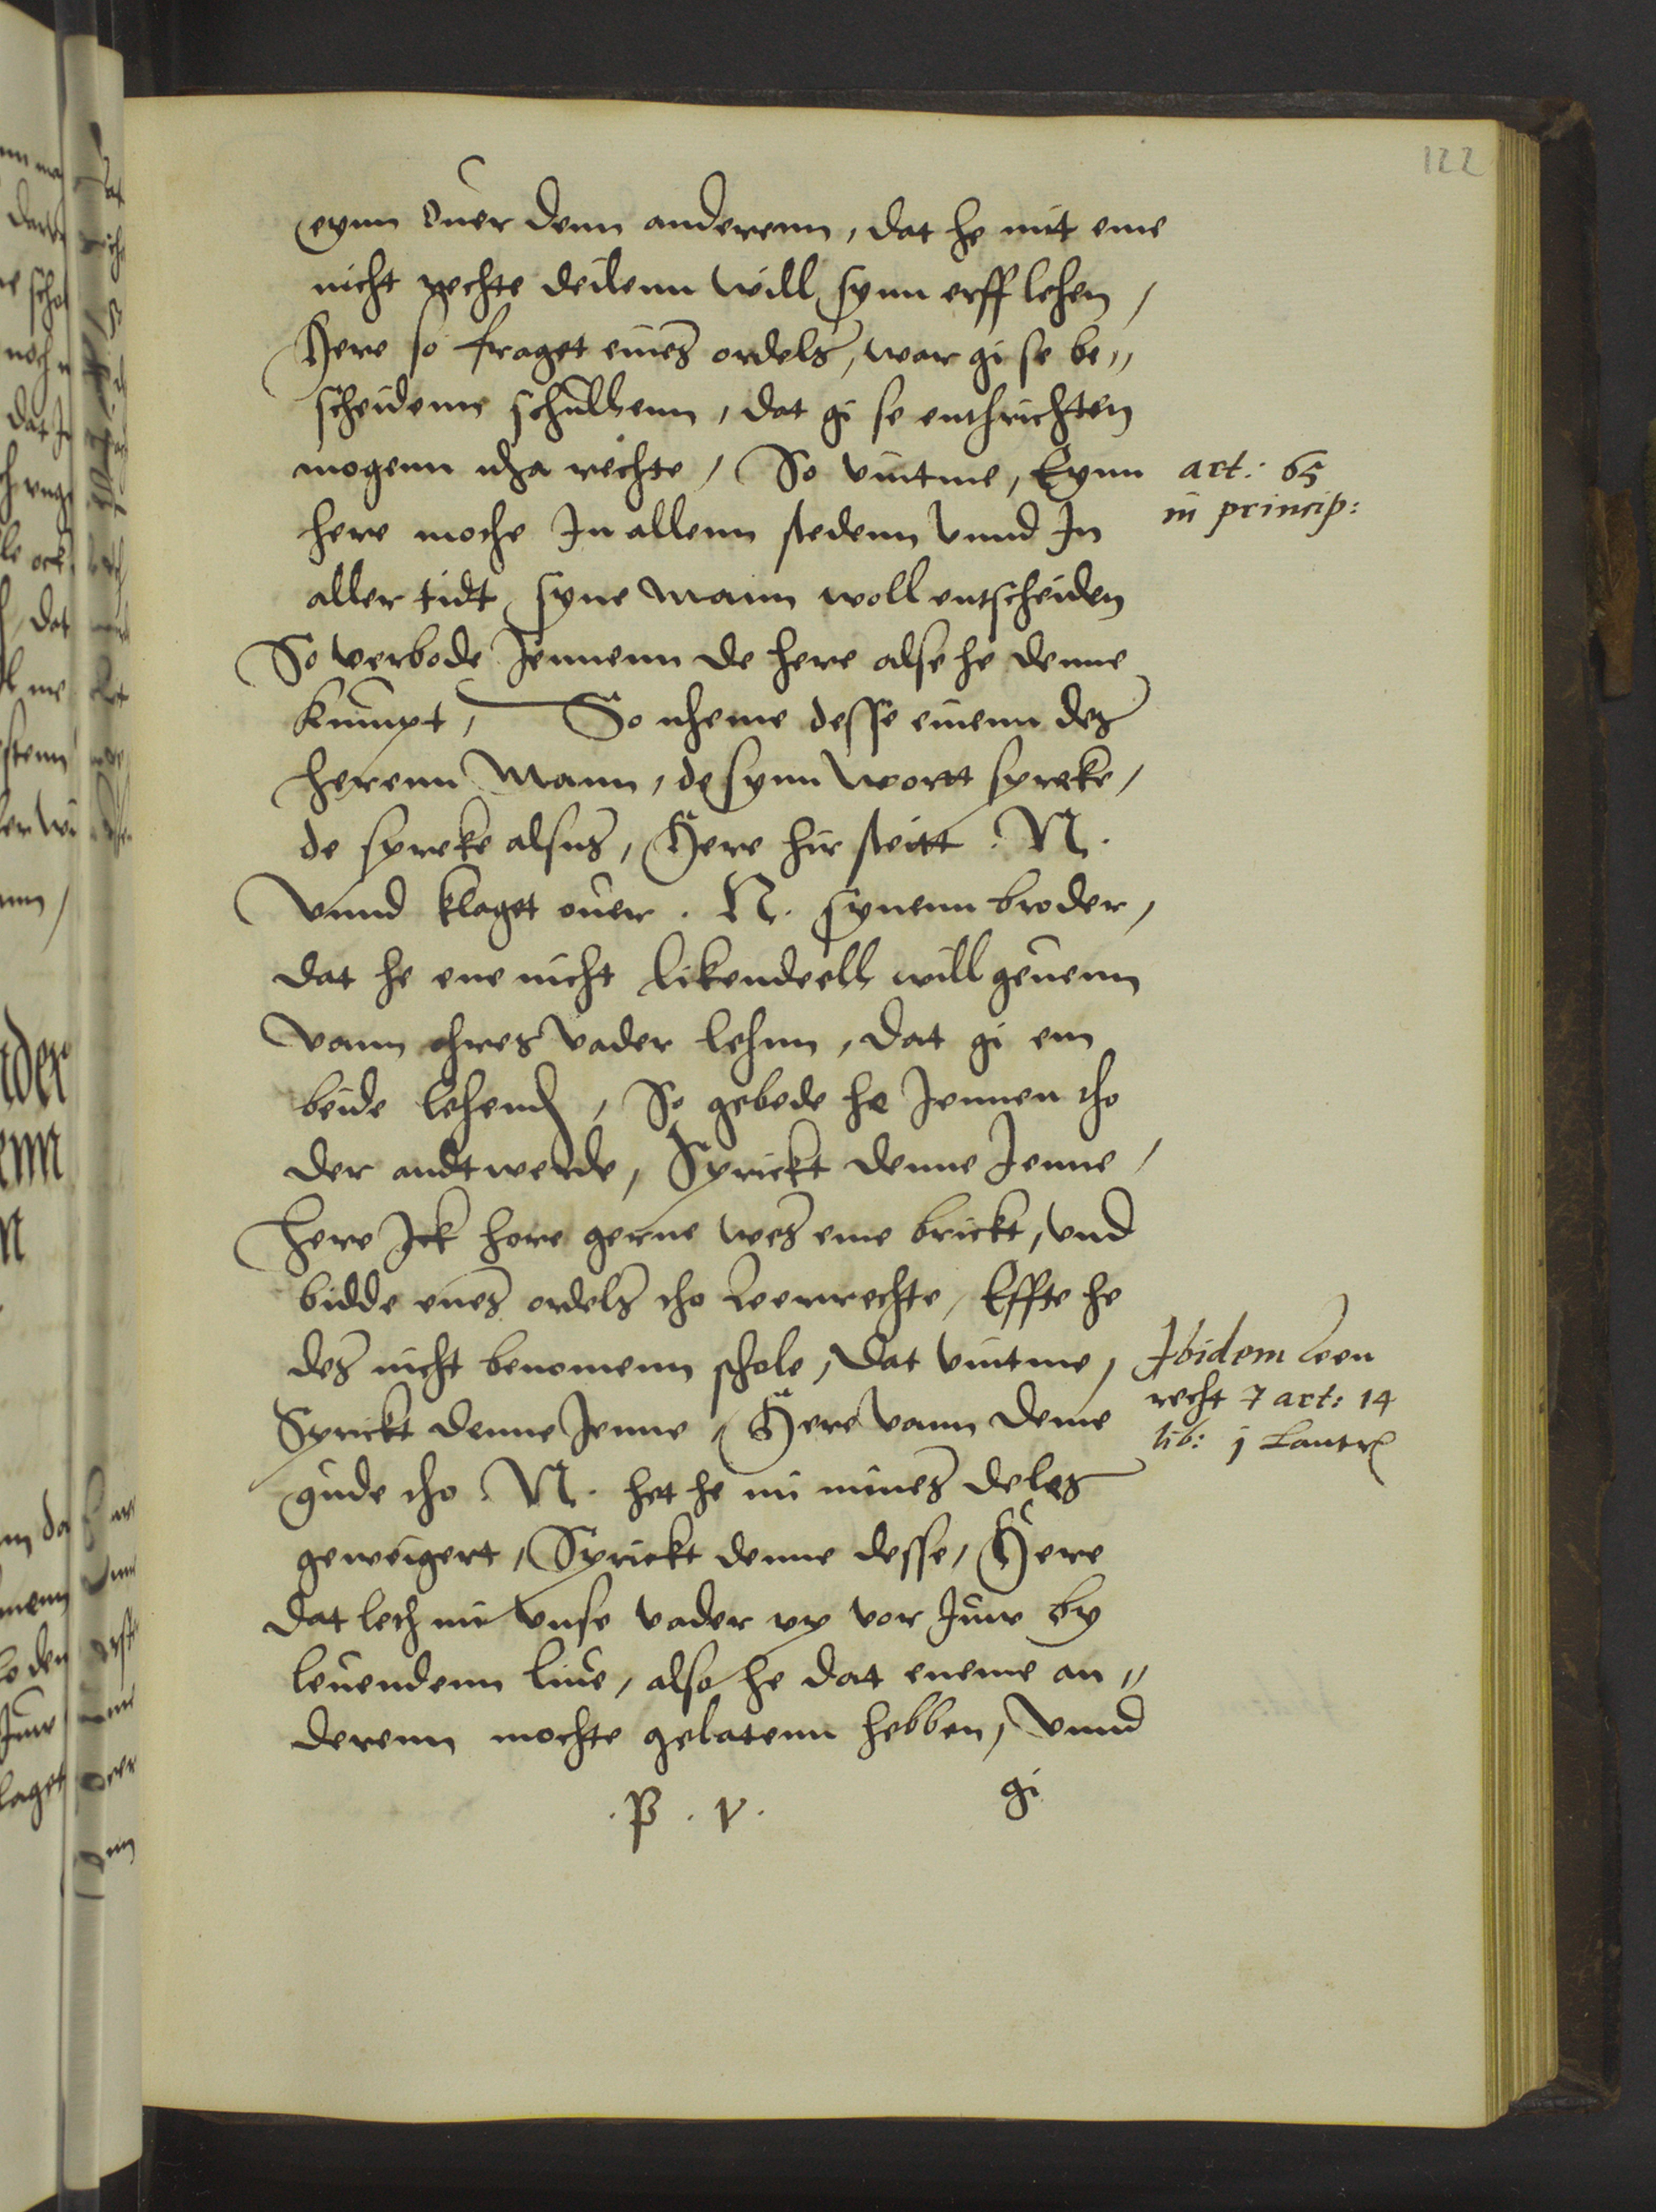 122
eynn ouer denn anderenn, dat he mit eme
nicht rechte deilenn will synn erff lehen /
Here so fraget eines ordels, war gi se be„
scheidenn schullenn, dat gi se enthrichten
mogenn na rechte / So vintme, Eynn
here moche In allenn stedenn vnnd In
aller tidt syne Mann woll entscheiden
So verbode Jennenn de here alse he denne
kumpt, So nheme desse einenn des
herenn Mann, de synn wortt spreke,
de spreke alsus, Here hir steitt . N.
Vnnd klaget ouer . N. synenn broder,
dat he ene nicht likendeell will geuenn
vann ohres vader lehnn, dat gi em
beide lehend, So gebede he Jennen tho
der andtwerde, Sprickt denne Jenne /
here Ick hore gerne wes eme brickt, vnd
bidde enes ordels tho leenrechte, Effte he
des nicht benomenn schole, dat vintme,
Sprickt denne Jenne, Here vann deme
gude tho . N. het he mi mines deles
geweigert, Sprickt denne desse, Here
dat leth mi vnse vader vp vor Juw by
leuendenn liue, also he dat eneme an„
derenn mochte gelatenn hebben, vnnd
gi
. P . v.
art: 65
in princip:
Ibidem Leen
recht 7 art: 14
lib: j Lantr